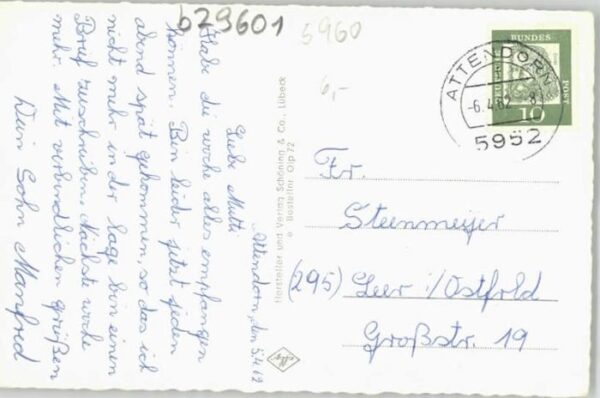 b29601
5960
6,-
Attendorn, den 5.4.62
Liebe Mutti
Habe die woche alles empfangen
können. Bin leider jetzt jeden
abend spät gekommen, so das ich
nicht mehr in der lage bin einen
Brief zuschreiben. Nächste woche
mehr. Mit verbindlichen grüßen
Dein Sohn Manfred
Hersteller und Verlag Schöning & Co., Lübeck
Bestellnr. Olp 72
DEUTSCHE
BUNDES
POST
10
ATTENDORN
-6.4.62.-8
5952
Fr.
Steenmeijer
(295) Leer i/Ostfrld
Großstr. 19